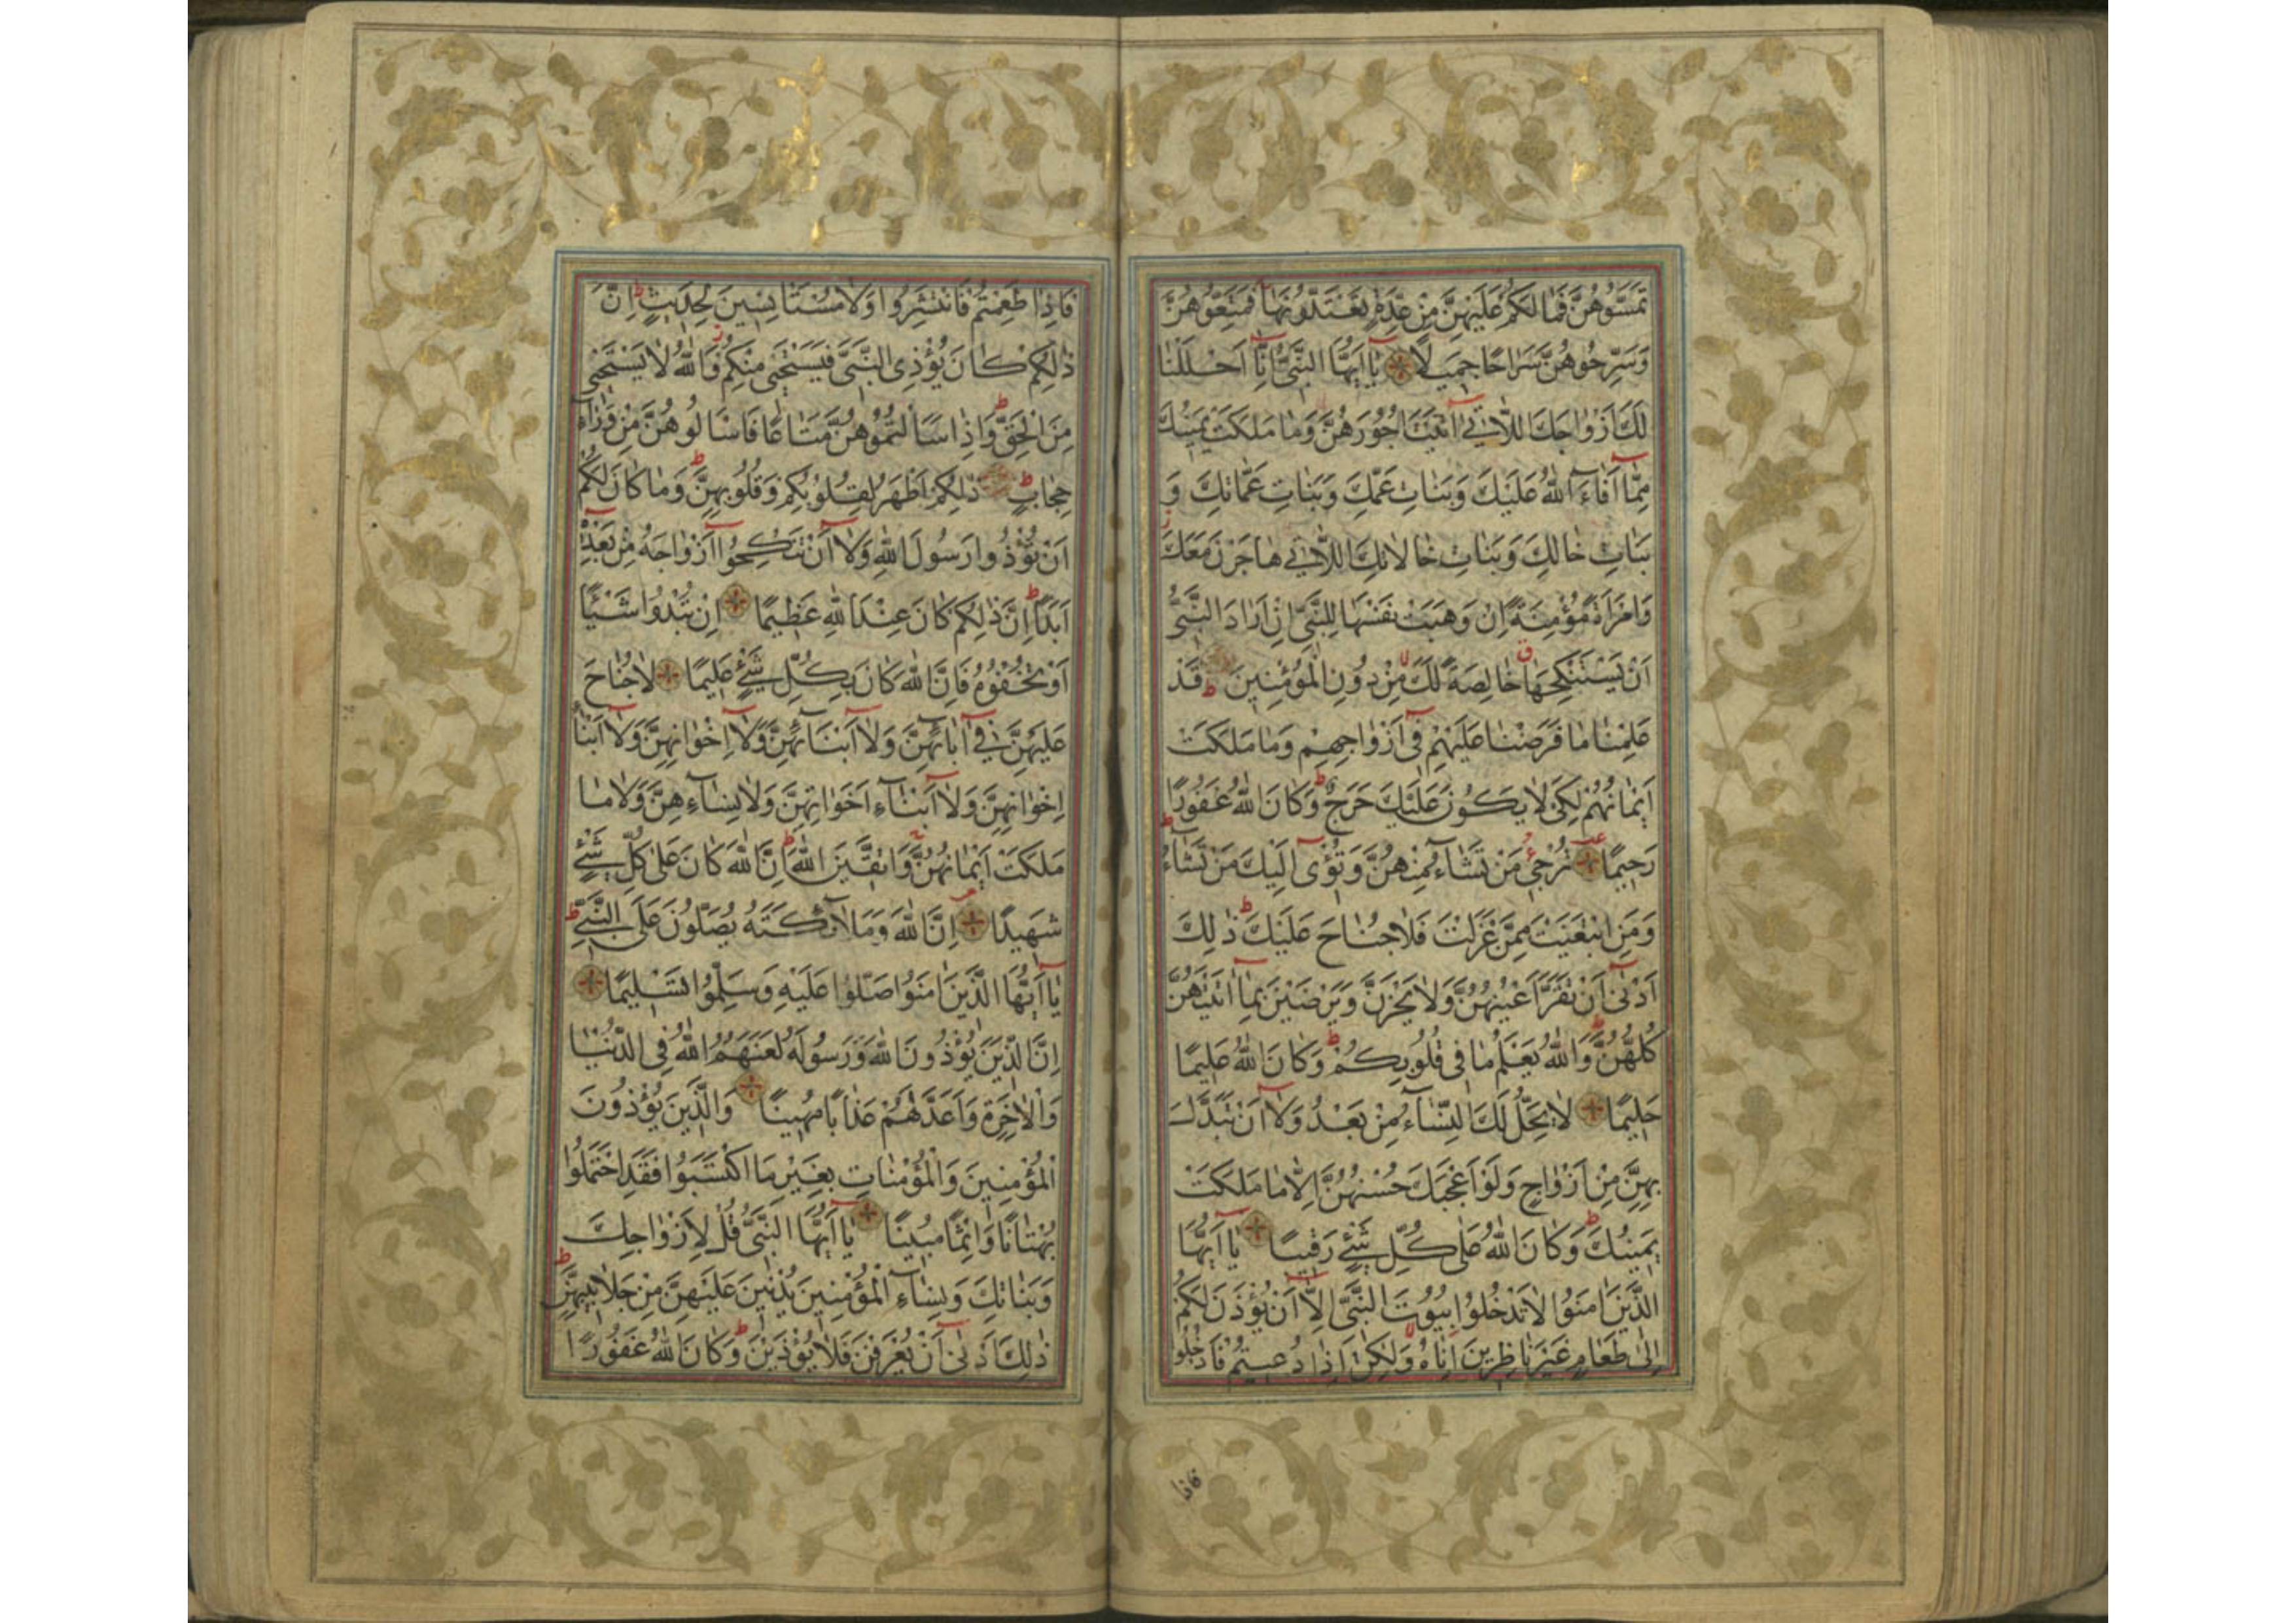 تَمَسُّوهُنَّ فَمَا لَكُمْ عَلَيْهِنَّ مِنْ عِدَّةٍ تَعْتَدُّونَهَا فَمَتِّعُوهُنَّ
وَسَرِّحُوهُنَّ سَرَاحًا جَمِيلًا يَا أَيُّهَا النَّبِيُّ إِنَّا أَحْلَلْنَا
لَكَ أَزْوَاجَكَ اللَّاتِي آتَيْتَ أُجُورَهُنَّ وَمَا مَلَكَتْ يَمِينُكَ
مِمَّا أَفَاءَ اللَّهُ عَلَيْكَ وَبَنَاتِ عَمِّكَ وَبَنَاتِ عَمَّاتِكَ وَ
بَنَاتِ خَالِكَ وَبَنَاتِ خَالَاتِكَ اللَّاتِي هَاجَرْنَ مَعَكَ
وَامْرَأَةً مُؤْمِنَةً إِنْ وَهَبَتْ نَفْسَهَا لِلنَّبِيِّ إِنْ أَرَادَ النَّبِيُّ
أَنْ يَسْتَنْكِحَهَا خَالِصَةً لَكَ مِنْ دُونِ الْمُؤْمِنِينَ قَدْ
عَلِمْنَا مَا فَرَضْنَا عَلَيْهِمْ فِي أَزْوَاجِهِمْ وَمَا مَلَكَتْ
أَيْمَانُهُمْ لِكَيْ لَا يَكُونَ عَلَيْكَ حَرَجٌ وَكَانَ اللَّهُ غَفُورًا
رَحِيمًا تُرْجِي مَنْ تَشَاءُ مِنْهُنَّ وَتُؤْوِي إِلَيْكَ مَنْ تَشَاءُ
وَمَنِ ابْتَغَيْتَ مِمَّنْ عَزَلْتَ فَلَا جُنَاحَ عَلَيْكَ ذَلِكَ
أَدْنَى أَنْ تَقَرَّ أَعْيُنُهُنَّ وَلَا يَحْزَنَّ وَيَرْضَيْنَ بِمَا آتَيْتَهُنَّ
كُلُّهُنَّ وَاللَّهُ يَعْلَمُ مَا فِي قُلُوبِكُمْ وَكَانَ اللَّهُ عَلِيمًا
حَلِيمًا لَا يَحِلُّ لَكَ النِّسَاءُ مِنْ بَعْدُ وَلَا أَنْ تَبَدَّلَ
بِهِنَّ مِنْ أَزْوَاجٍ وَلَوْ أَعْجَبَكَ حُسْنُهُنَّ إِلَّا مَا مَلَكَتْ
يَمِينُكَ وَكَانَ اللَّهُ عَلَى كُلِّ شَيْءٍ رَقِيبًا يَا أَيُّهَا
الَّذِينَ آمَنُوا لَا تَدْخُلُوا بُيُوتَ النَّبِيِّ إِلَّا أَنْ يُؤْذَنَ لَكُمْ
إِلَى طَعَامٍ غَيْرَ نَاظِرِينَ إِنَاهُ وَلَكِنْ إِذَا دُعِيتُمْ فَادْخُلُوا
فاذا
فَإِذَا طَعِمْتُمْ فَانْتَشِرُوا وَلَا مُسْتَأْنِسِينَ لِحَدِيثٍ إِنَّ
ذَلِكُمْ كَانَ يُؤْذِي النَّبِيَّ فَيَسْتَحْيِي مِنْكُمْ وَاللَّهُ لَا يَسْتَحْيِي
مِنَ الْحَقِّ وَإِذَا سَأَلْتُمُوهُنَّ مَتَاعًا فَاسْأَلُوهُنَّ مِنْ وَرَاءِ
حِجَابٍ ذَلِكُمْ أَطْهَرُ لِقُلُوبِكُمْ وَقُلُوبِهِنَّ وَمَا كَانَ لَكُمْ
أَنْ تُؤْذُوا رَسُولَ اللَّهِ وَلَا أَنْ تَنْكِحُوا أَزْوَاجَهُ مِنْ بَعْدِهِ
أَبَدًا إِنَّ ذَلِكُمْ كَانَ عِنْدَ اللَّهِ عَظِيمًا إِنْ تُبْدُوا شَيْئًا
أَوْ تُخْفُوهُ فَإِنَّ اللَّهَ كَانَ بِكُلِّ شَيْءٍ عَلِيمًا لَا جُنَاحَ
عَلَيْهِنَّ فِي آبَائِهِنَّ وَلَا أَبْنَائِهِنَّ وَلَا إِخْوَانِهِنَّ وَلَا أَبْنَاءِ
إِخْوَانِهِنَّ وَلَا أَبْنَاءِ أَخَوَاتِهِنَّ وَلَا نِسَائِهِنَّ وَلَا مَا
مَلَكَتْ أَيْمَانُهُنَّ وَاتَّقِينَ اللَّهَ إِنَّ اللَّهَ كَانَ عَلَى كُلِّ شَيْءٍ
شَهِيدًا إِنَّ اللَّهَ وَمَلَائِكَتَهُ يُصَلُّونَ عَلَى النَّبِيِّ
يَا أَيُّهَا الَّذِينَ آمَنُوا صَلُّوا عَلَيْهِ وَسَلِّمُوا تَسْلِيمًا
إِنَّ الَّذِينَ يُؤْذُونَ اللَّهَ وَرَسُولَهُ لَعَنَهُمُ اللَّهُ فِي الدُّنْيَا
وَالْآخِرَةِ وَأَعَدَّ لَهُمْ عَذَابًا مُهِينًا وَالَّذِينَ يُؤْذُونَ
الْمُؤْمِنِينَ وَالْمُؤْمِنَاتِ بِغَيْرِ مَا اكْتَسَبُوا فَقَدِ احْتَمَلُوا
بُهْتَانًا وَإِثْمًا مُبِينًا يَا أَيُّهَا النَّبِيُّ قُلْ لِأَزْوَاجِكَ
وَبَنَاتِكَ وَنِسَاءِ الْمُؤْمِنِينَ يُدْنِينَ عَلَيْهِنَّ مِنْ جَلَابِيبِهِنَّ
ذَلِكَ أَدْنَى أَنْ يُعْرَفْنَ فَلَا يُؤْذَيْنَ وَكَانَ اللَّهُ غَفُورًا